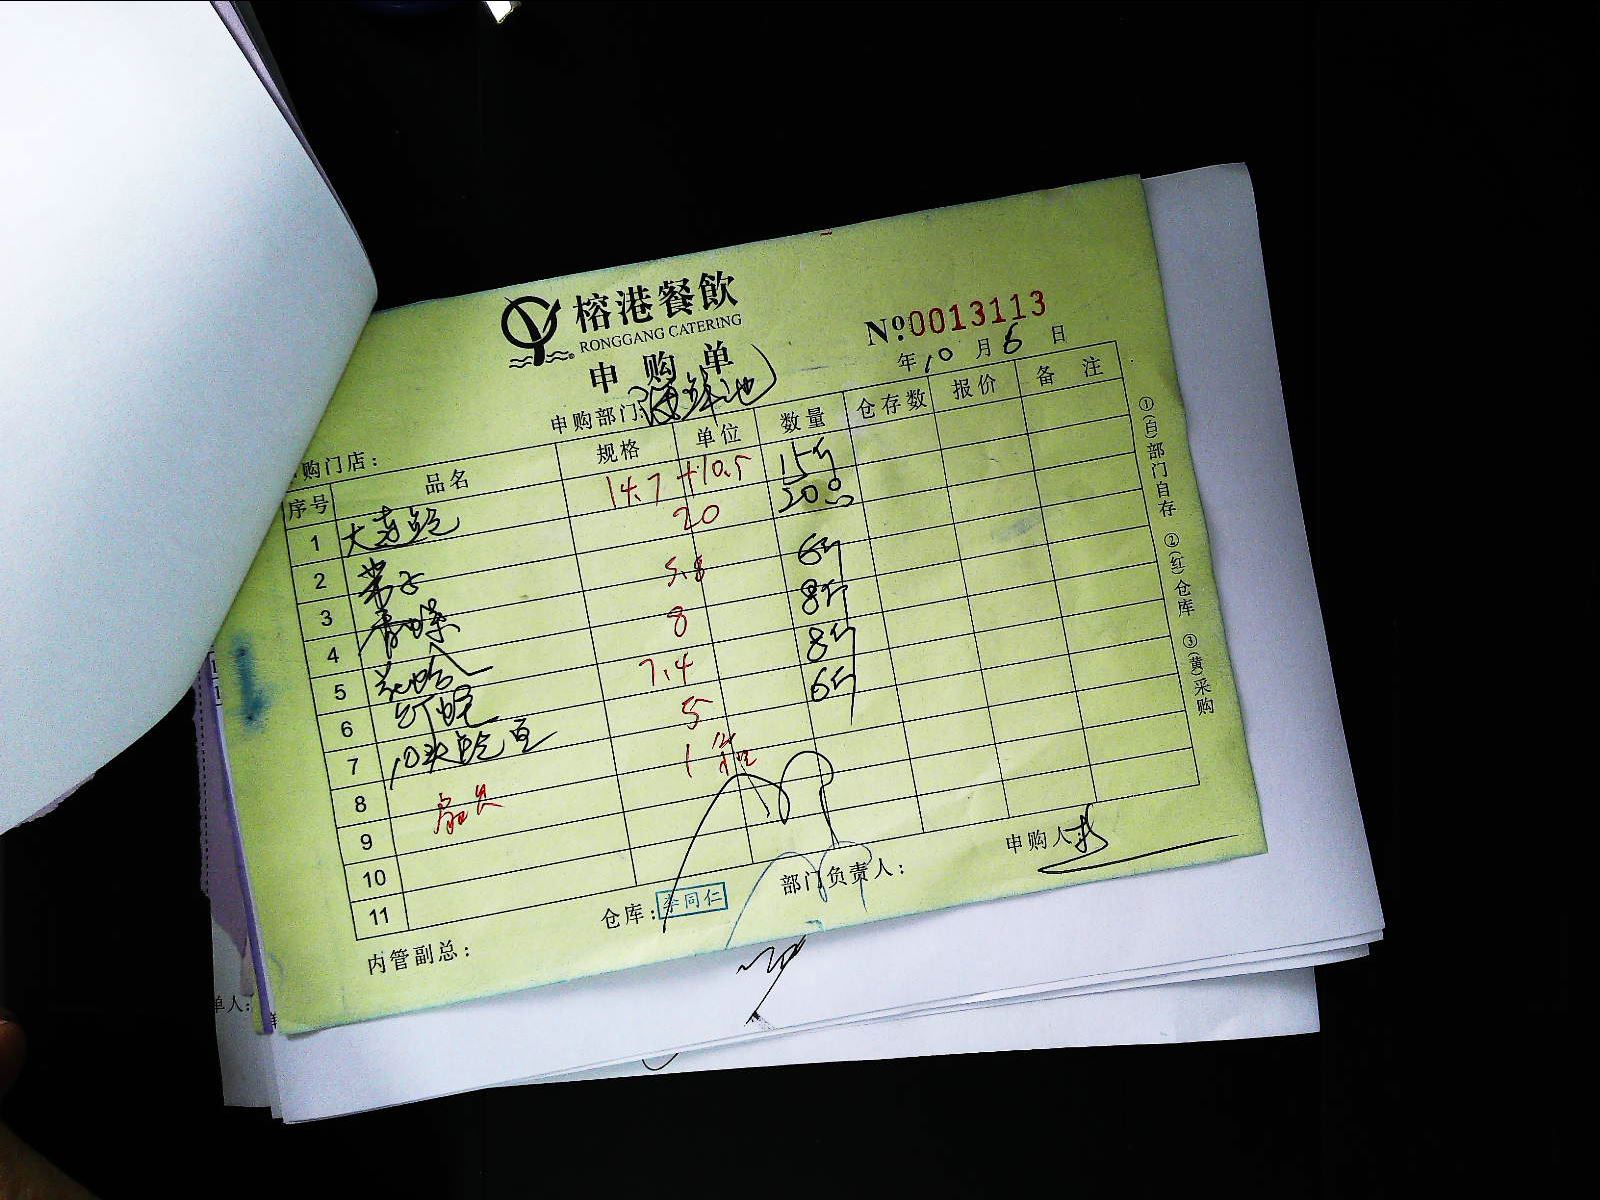 榕港餐飲
RONGGANG CATERING
申购单
No 0013113
年10月6日
申购部门:海鲜池
购门店:
序号 品名 规格 单位 数量 仓存数 报价 备注
1 大连鲍 14.7+10.5 15斤
2 带子 20 20
3 青口螺 5.8 6斤
4 花哈 8 8斤
5 7.4 8斤
6 10头鲍 5 6斤
7 1
8
9
10
11
①(白)部门自存 ②(红)仓库 ③(黄)采购
内管副总:
仓库:李同仁
部门负责人:
申购人
单人: